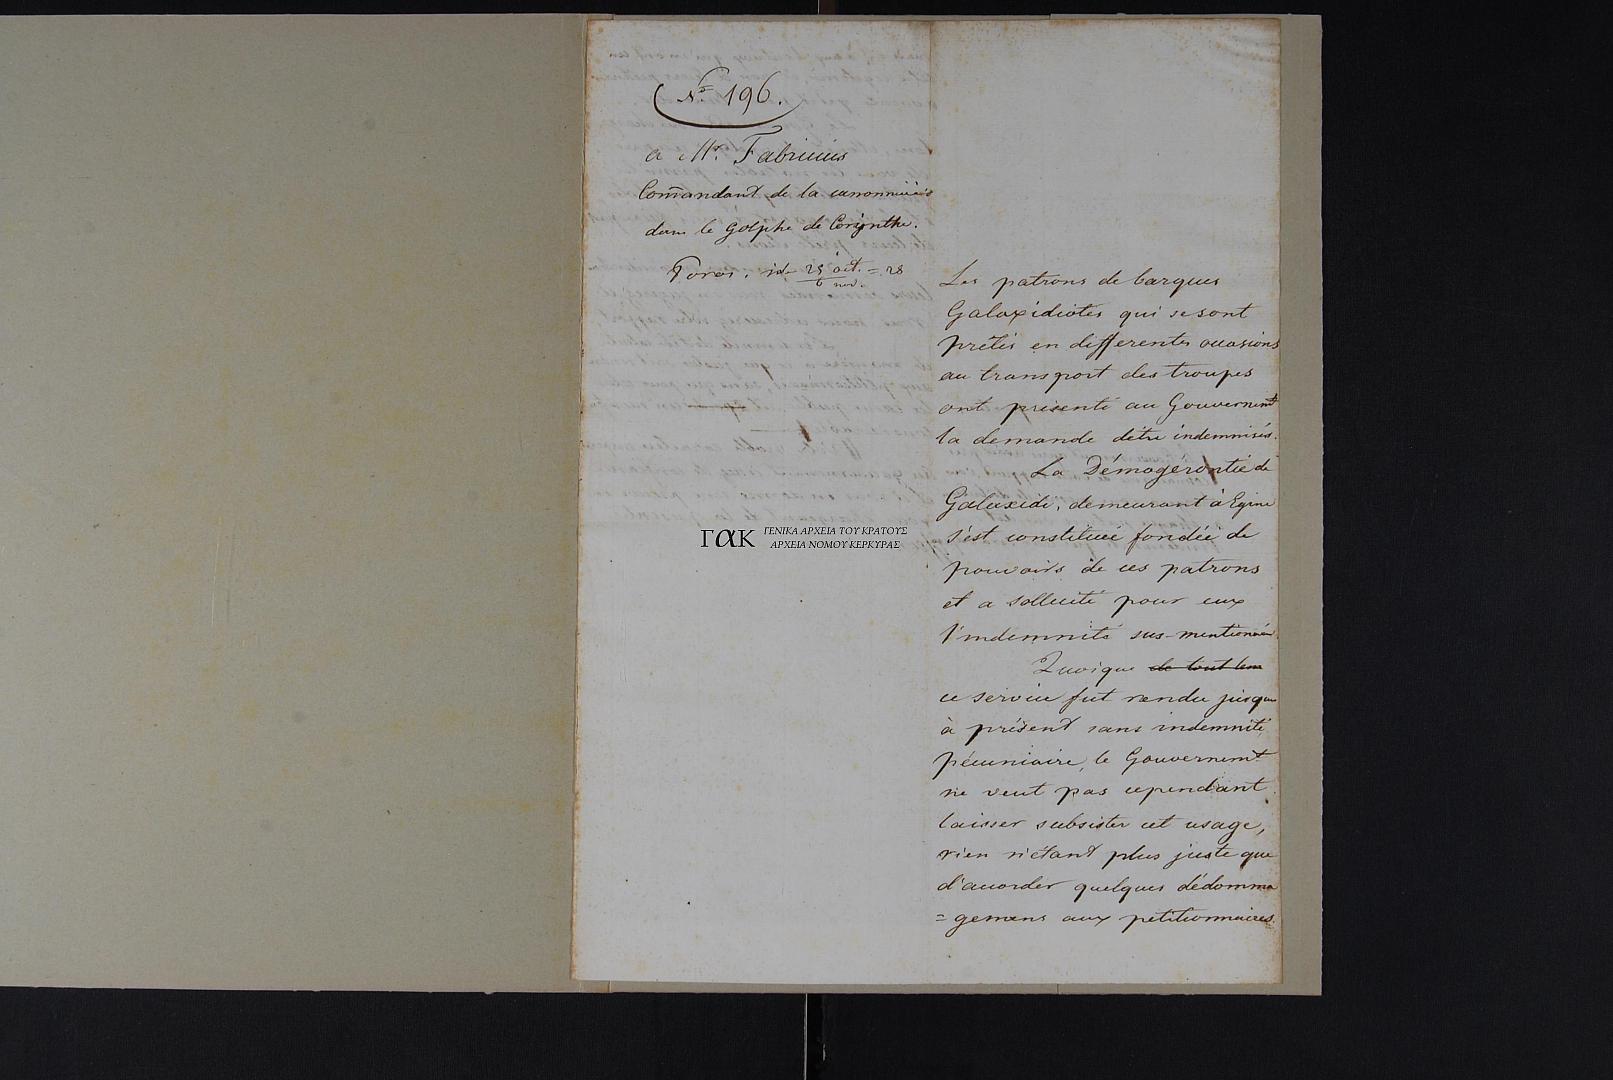 Nº 196.
a Mr. Fabricius
Com̄andant de la canonnière
dans le Golphe de Corynthe.
Poros. id. 25 oct. = 28
6 nov.
Les patrons de barques
Galaxidiotes qui se sont
prêtés en differentes occasions
au transport des troupes
ont présenté au Gouvernemt
la demande d'être indemnisés.
La Démogérontie de
Galaxidi, demeurant à Egine
s'est constituée fondée de
pouvoirs de ces patrons
et a sollicité pour eux
l'indemnité sus-mentionnée.
Quoique de tout tem
ce service fut rendu jusque
à présent sans indemnité
pécuniaire, le Gouvernemt
ne veut pas cependant
laisser subsister cet usage,
rien n'étant plus juste que
d'accorder quelques dédomma
= gemens aux petitionnaires.
ΓΑΚ ΓΕΝΙΚΑ ΑΡΧΕΙΑ ΤΟΥ ΚΡΑΤΟΥΣ
ΑΡΧΕΙΑ ΝΟΜΟΥ ΚΕΡΚΥΡΑΣ